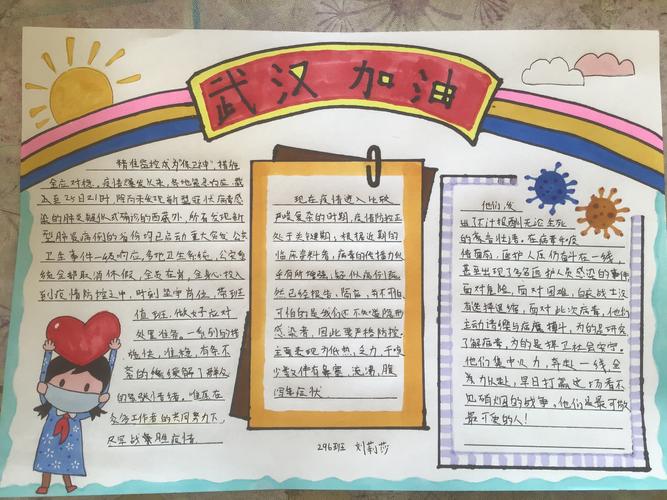 武汉加油
精准防控成为"保卫战",精准
全应对稳,疫情爆发以来,各地紧急应对 截
至1月25日21时,除尚未发现新型冠状病毒感
染的肺炎疑似或确诊的西藏外,所有发现新
型肺炎病例的省份均已启动重大突发公共
卫生事件一级响应,多地卫生系统、公安系
统全部取消休假,全员在岗,全身心投入
到疫情防控之中,时刻坚守岗位,带班
值班,做好应对
处置准备。一系列的措
施快、准、稳、有条不
紊的
的紧张情绪,
众多工作者的共同努力下,
战胜疫情
现在疫情进入比较
严峻复杂的时期,疫情防控正
处于关键期,根据近期的
临床资料看,病毒的传播力似
乎有所增强,疑似病例虽
然已经报告,隔离,有不可怕,
可怕的是我们还不知道隐形
感染者,因此要严格防控。
主要表现为低热,乏力,干咳
少数伴有鼻塞,流涕,腹
泻等症状
他们,发
出了不计报酬无论生死
的豪言壮语,在病毒和疫
情面前,医护人员仍奋斗在一线,
甚至出现了多名医护人员感染的事件,
面对危险,面对困难,白衣战士没
有选择退缩,面对此次病毒,他们
主动请缨与病魔搏斗,为的是研究
了解病毒,为的是捍卫社会安宁。
他们集中火力,奔赴一线,全
力以赴,早日打赢这场看不
见硝烟的战事,他们是最可敬
最可爱的人!
296班 刘莉莎